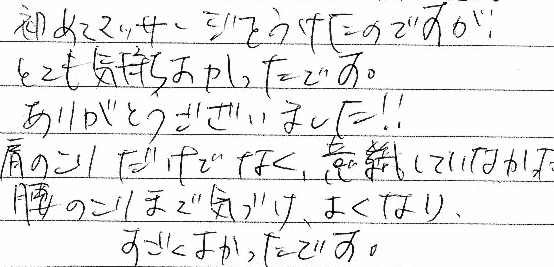 初めてマッサージをうけたのですが、
とても気持ちよかったです。
ありがとうございました!!
肩のこりだけでなく、意識していなかった
腰のこりまで気づけ、よくなり、
すごくよかったです。